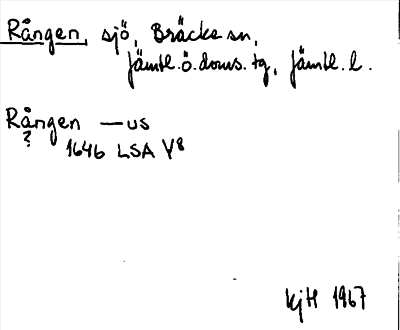 Rången, sjö, Bräcke sn,
Jämtl. ö. doms. tg, Jämtl. l.
Rången — us
?
1646 LSA Y8
KjH 1967